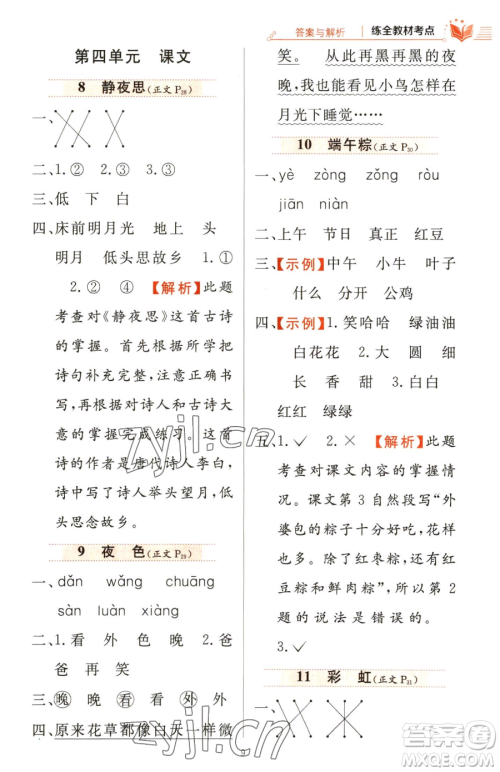 答案与解析 练全教材考点
第四单元 课文
8 静夜思(正文 P28)
一、
二、1.② ③ 2.③ ③
三、低 下 白
四、床前明月光 地上 头
明月 低头思故乡 1.①
2.② ④ 【解析】此题
考查对《静夜思》这首古诗
的掌握。根据所学把古
诗句补充完整，并根据对
诗意的掌握对诗人和古诗大
意的掌握完成练习。这首
诗的作者是唐代诗人李白，
诗中写了诗人举头望月，低
头思念故乡。
9 夜 色(正文 P29)
一、dǎn wǎng chuāng
sàn luàn xiàng
二、1.看 外 色 晚 2.爸
爸 再 笑
三、晚 晚 看 看 外 外
四、原来花草都像白天一样微
笑。 从此再黑再黑的夜
晚，我也能看见小鸟怎样在
月光下睡觉……
10 端午粽(正文 P30)
一、yè zòng zǒng ròu
jiān niàn
二、上午 节日 真正 红豆
三、【示例】中午 小牛 叶子
什么 分开 公鸡
四、【示例】1.笑哈哈 绿油油
白花花 2.大 圆 细
长 香 甜 3.白白
红红 绿绿
五、1.✓ 2.× 【解析】此题
考查对课文内容的掌握情
况。课文第 3 自然段写“外
婆包的粽子十分好吃，花样
也多。除了红枣粽，还有红
豆粽和鲜肉粽”，所以第 2
题的说法是错误的。
3.✓
11 彩 虹(正文 P31)
一、
zyjl.cn
zyjl.cn
答案圈
MXQE.COM